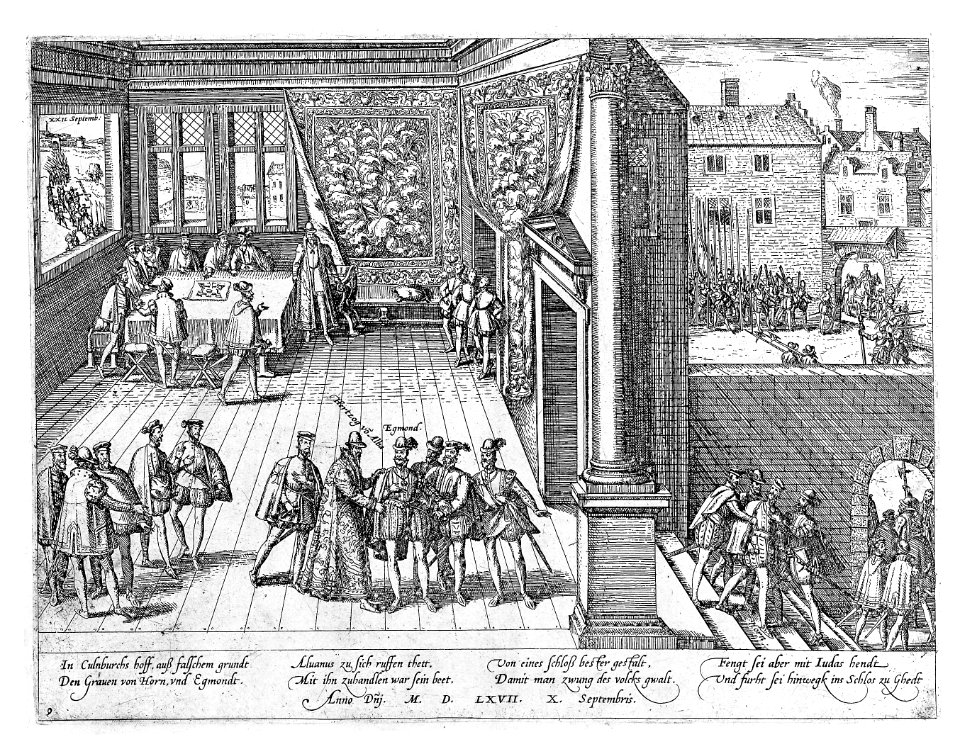 XXII Septemb:
Hertzog vō Alb
Egmond
In Culnburchs hoff, auß falschem grundt
Den Grauen von Horn, vnd Egmondt.
Aluanus zu sich ruffen thett.
Mit ihn zuhandlen war sein beet.
Von eines schloß bester gestalt,
Damit man zwung des volcks gwalt.
Fengt sei aber mit Iudas hendt
Vnd furht sei hinwegk ins Schlos zu Ghedt
Anno Dñj. M. D. LXVII. X. Septembris.
9